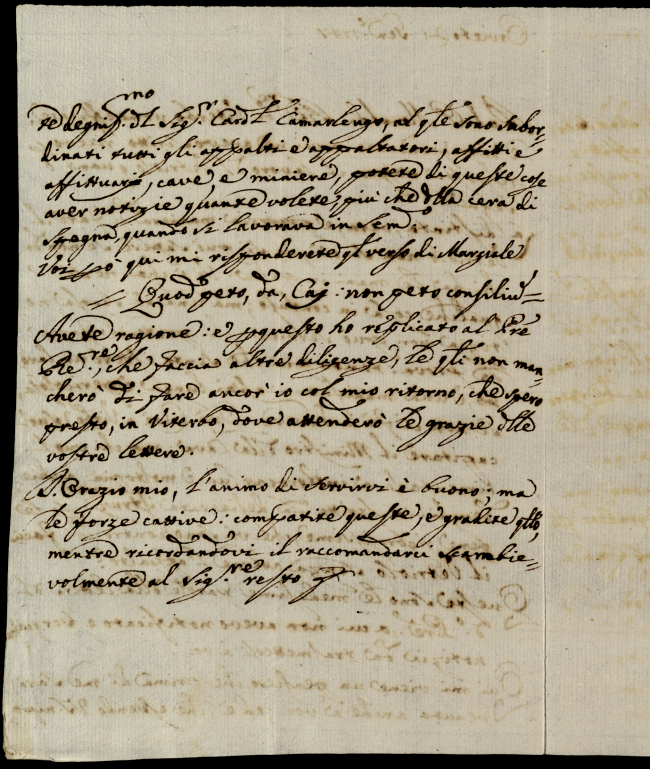 mo
te degniss. dl Sig.r Card.l Camarlengo, al qle sono subor-
dinati tutti gli appalti e appaltatori, affitti e
affittuarii, cave, e miniere, potete di queste cose
aver notizie quante volete, più che dlla cera di
Spagna, quando si lavorava in Sem.o:
Voi però qui mi risponderete ql verso di Marziale
Quod peto, da, Caj: non peto consiliū=
Avete ragione: e p questo ho replicato al Pre
Re.re, che faccia altre diligenze, le qli non man-
cherò di fare ancor io col mio ritorno, che spero
presto, in Viterbo, dove attenderò le grazie dlle
vostre lettere.
S. Orazio mio, l'animo di servirvi è buono; ma
le forze cattive: compatite queste, e gradite qllo,
mentre ricordandovi il raccomandarci scambie-
volmente al Sig.re resto